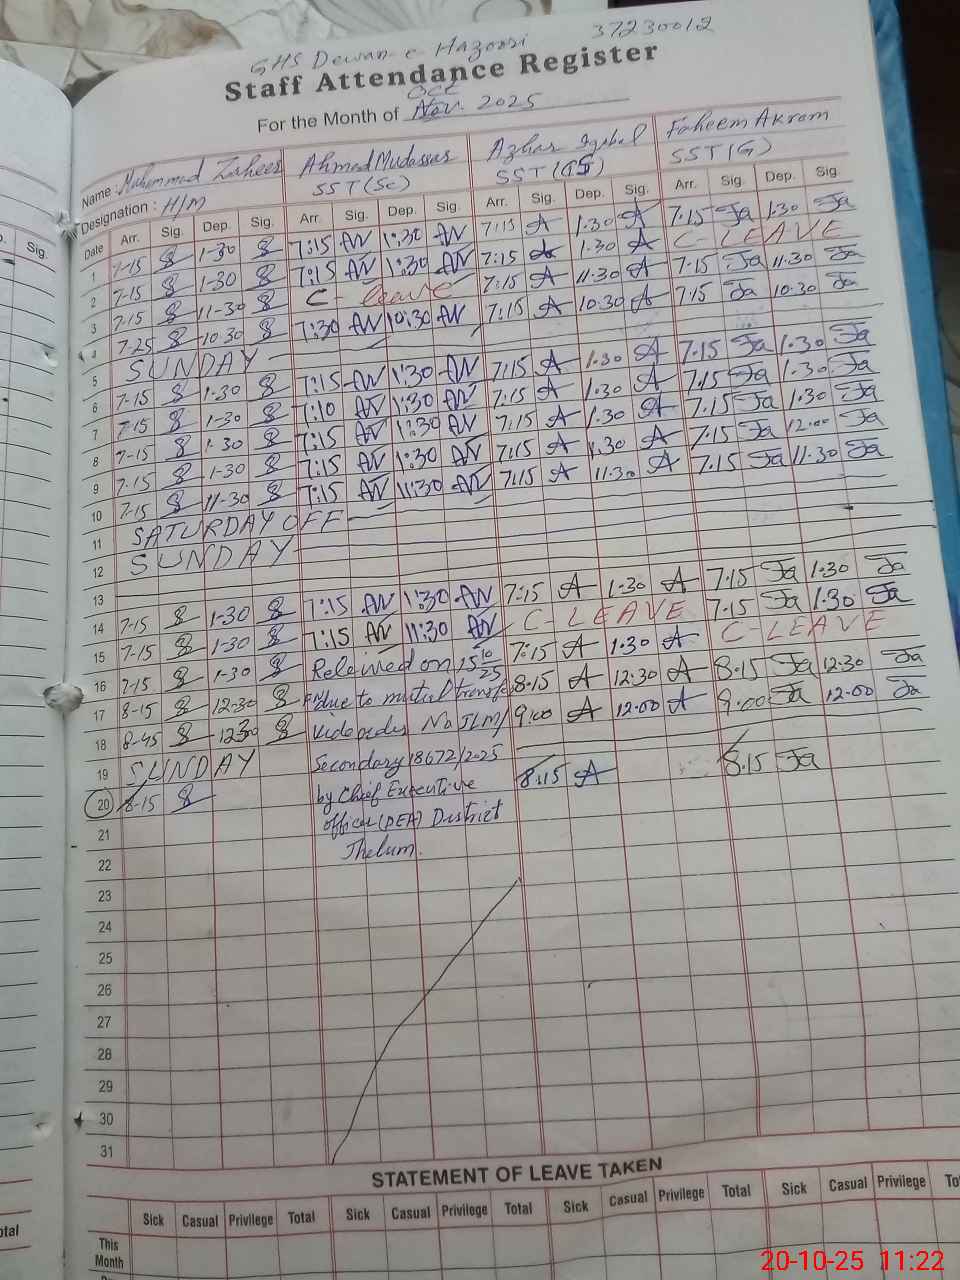 GHS Dewan-e Hazoori 37230012
Staff Attendance Register
For the Month of Oct Nov. 2025
Name : Muhammad Zaheer Ahmad Mudassar Azhar Iqbal Faheem Akram
Designation : H/M SST(Sc) SST(GS) SST(G)
Date Arr. Sig. Dep. Sig. Arr. Sig. Dep. Sig. Arr. Sig. Dep. Sig. Arr. Sig. Dep. Sig.
1 7-15 1-30 7:15 AN 1:30 AN 7:15 A 1.30 A 7.15 Ja 1.30 Ja
2 7-15 1-30 7:15 AN 1:30 AN 7:15 A 1.30 A C-LEAVE
3 7-15 11-30 C-leave 7:15 A 11.30 A 7.15 Ja 11.30 Ja
4 7-25 10-30 7:30 AN 10:30 AN 7:15 A 10.30 A 7.15 Ja 10.30 Ja
5 SUNDAY
6 7-15 1-30 7:15 AN 1:30 AN 7:15 A 1.30 A 7.15 Ja 1.30 Ja
7 7-15 1-30 7:10 AN 1:30 AN 7:15 A 1.30 A 7.15 Ja 1.30 Ja
8 7-15 1-30 7:15 AN 1:30 AN 7:15 A 1.30 A 7.15 Ja 12.00 Ja
9 7-15 1-30 7:15 AN 1:30 AN 7:15 A 1.30 A 7.15 Ja 11.30 Ja
10 7-15 11-30 7:15 AN 11:30 AN 7:15 A 11.30 A
11 SATURDAY OFF
12 SUNDAY
13
14 7-15 1-30 7:15 AN 1:30 AN 7:15 A 1.30 A 7.15 Ja 1.30 Ja
15 7-15 1-30 7:15 AN 11:30 AN C-LEAVE 7.15 Ja 1.30 Ja
16 7-15 1-30 Releived on 15 10/25 7:15 A 1.30 A C-LEAVE
17 8-15 12-30 due to mutual transfer 8.15 A 12.30 A 8.15 Ja 12.30 Ja
18 8-45 1230 vide order No JLM/ 9:00 A 12.00 A 9.00 Ja 12.00 Ja
19 SUNDAY Secondary 18672/2025
20 8-15 by Chief Executive 8:15 A 8.15 Ja
21 officer (DEA) District
22 Jhelum.
23
24
25
26
27
28
29
30
31
STATEMENT OF LEAVE TAKEN
Sick Casual Privilege Total Sick Casual Privilege Total Sick Casual Privilege Total Sick Casual Privilege
This Month
Sig.
20-10-25 11:22